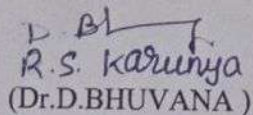 D. Bh
R.S. Karunya
(Dr.D.BHUVANA )